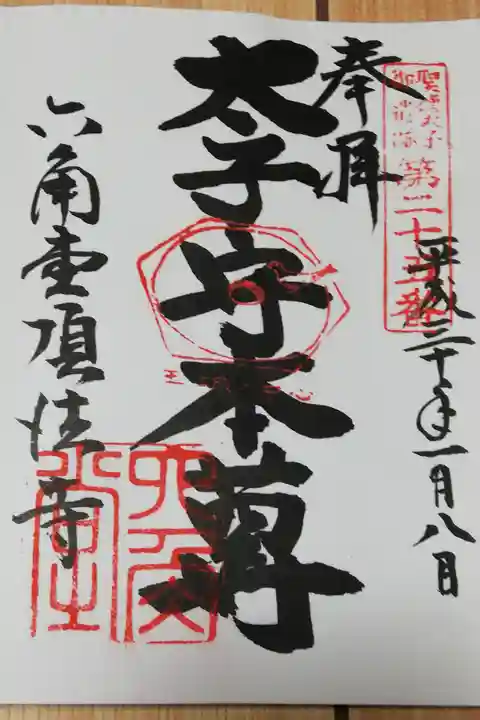 奉拝
聖徳太子
御遺跡
第二十五番
平成三十年一月八日
太子守本尊
六角堂頂法寺
六角堂